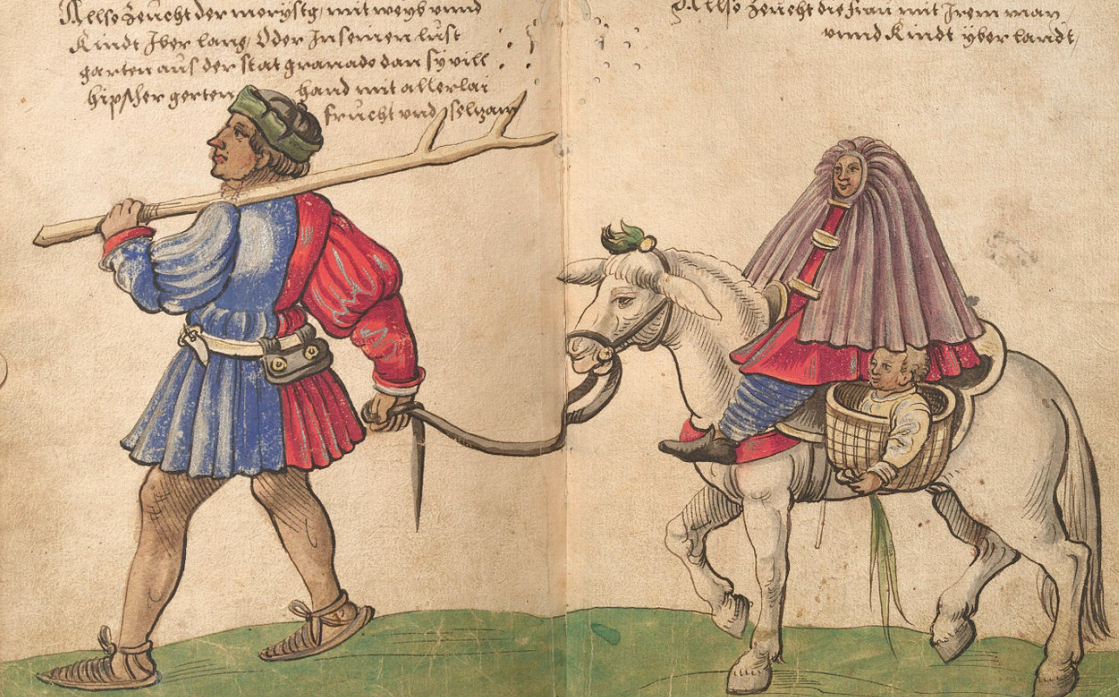 Allso zeucht der morystg, mit weyb vnnd
Kindt Jber lang, Oder Jn seinen lust
garten aus der stat granado dan sy vill
hipscher gerten hand mit allerlai
frucht vnd selzam
Allso zeucht die frau mit Jrem man,
vnnd Kindt yber landt,